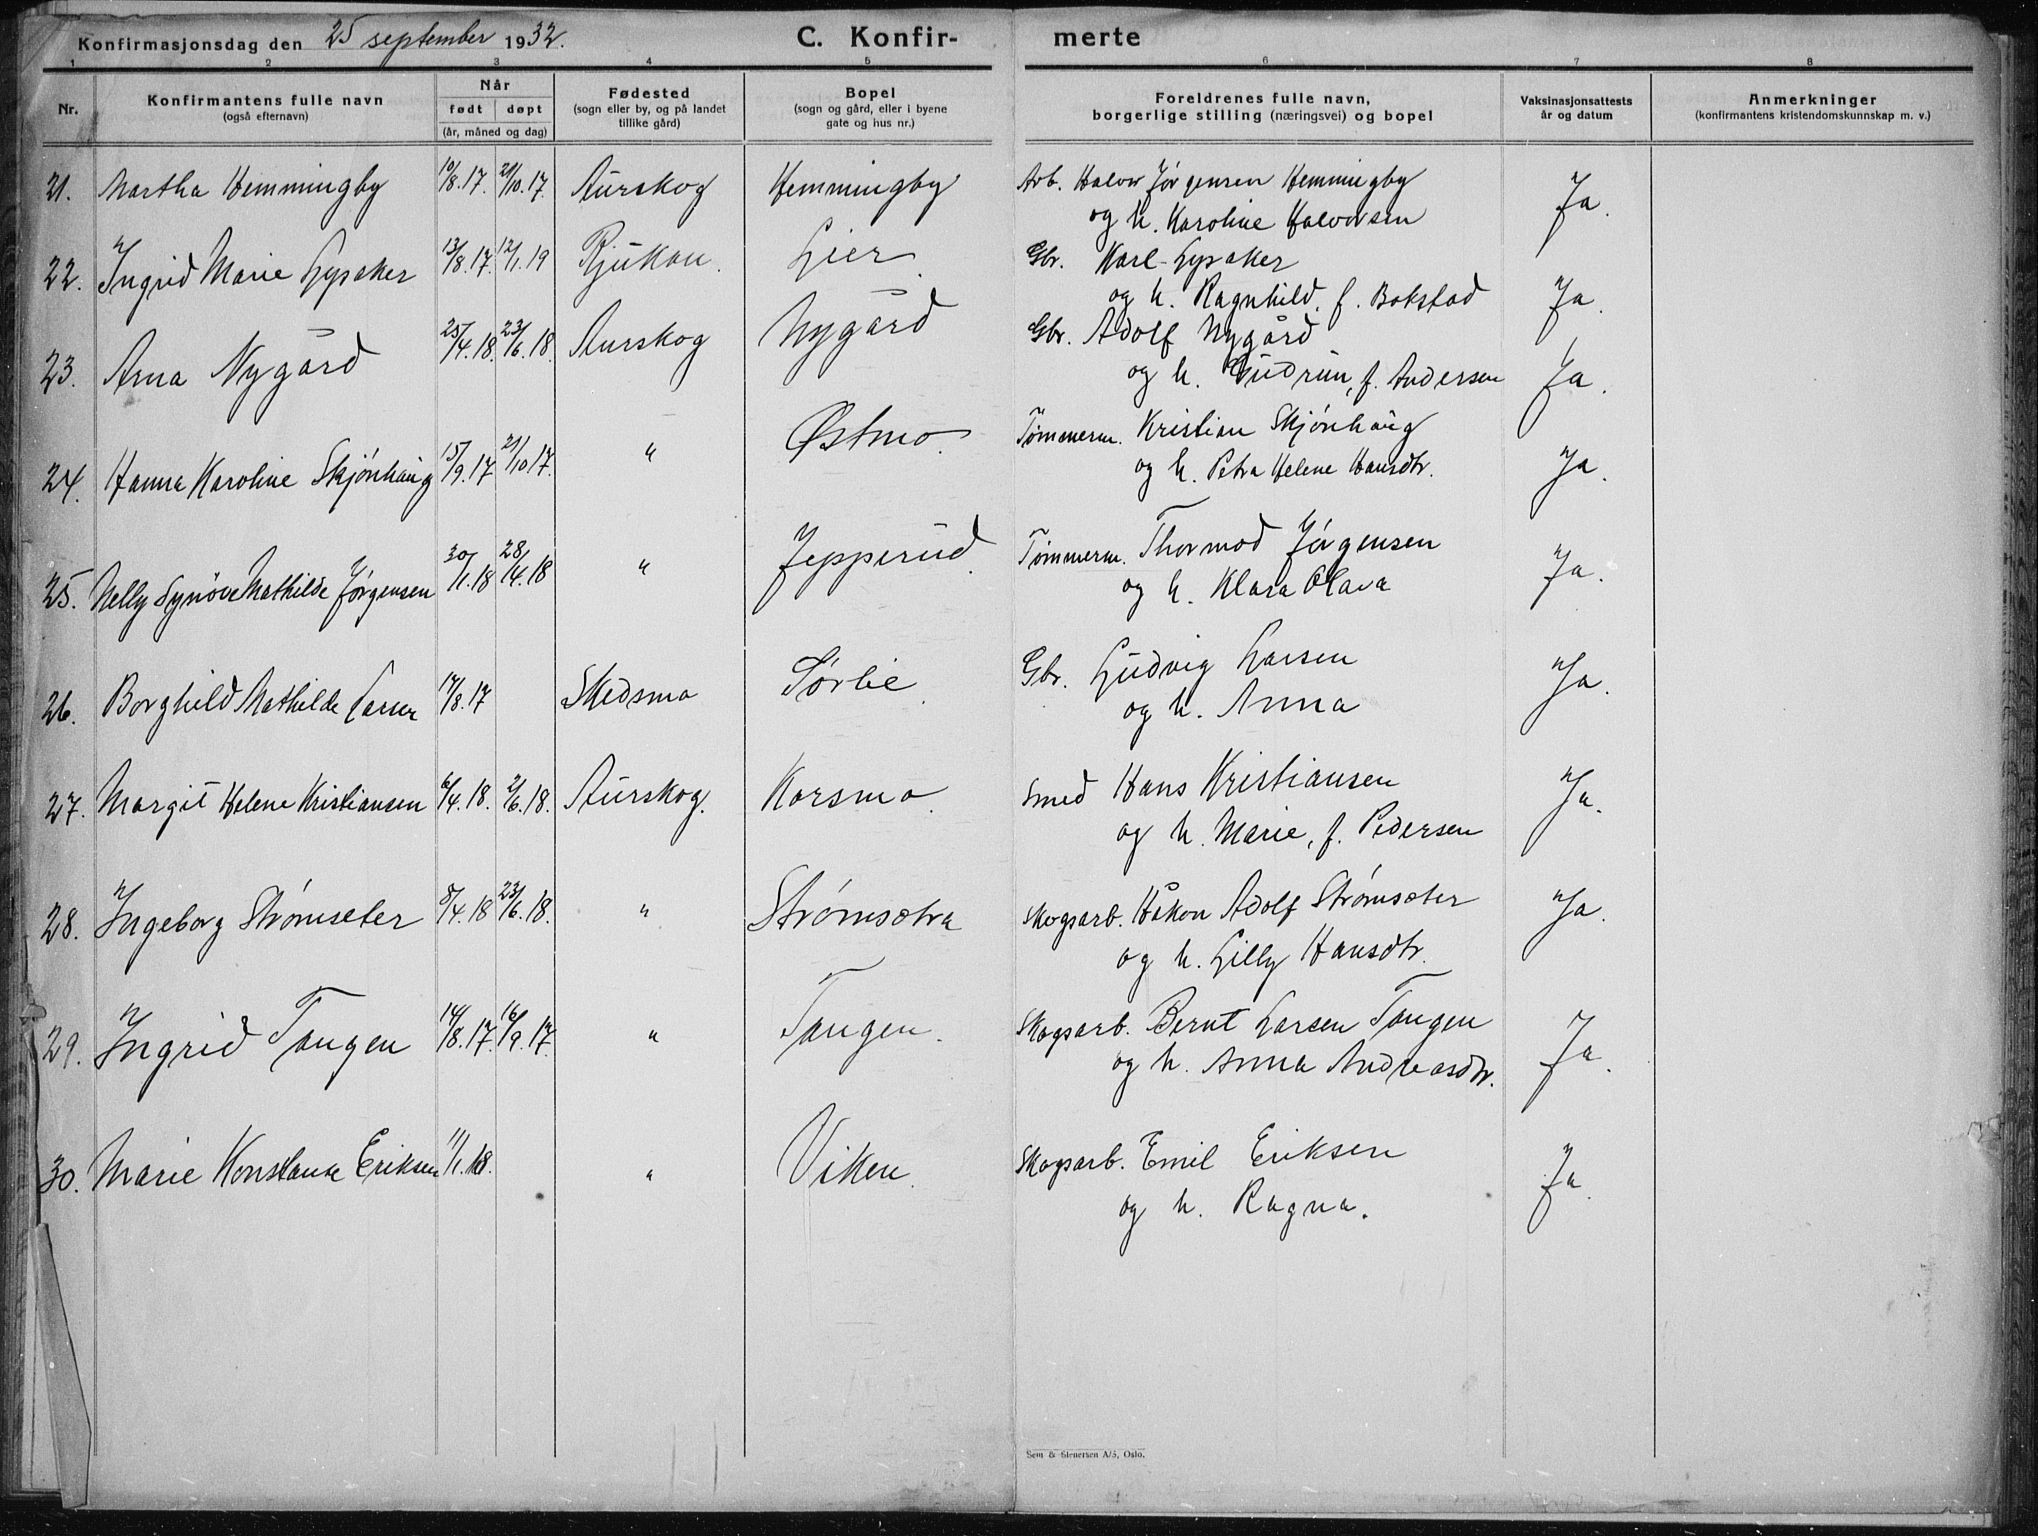 Konfirmasjonsdag den 25 september 1932. C. Konfir- merte
1 2 3 4 5 6 7 8
Nr. Konfirmantens fulle navn (også efternavn) Når født døpt (år, måned og dag) Fødested (sogn eller by, og på landet tillike gård) Bopel (sogn og gård, eller i byene gate og hus nr.) Foreldrenes fulle navn, borgerlige stilling (næringsvei) og bopel Vaksinasjonsattests år og datum Anmerkninger (konfirmantens kristendomskunnskap m. v.)
21. Martha Hemmingby 10/8.17. 21/10.17. Aurskog Hemmingby Arb. Halvor Jørgensen Hemmingby
og h. Karoline Halvorsen Ja.
22. Ingrid Marie Lysaker 13/8.17. 12/1.19 Rjukan. Lier. Gbr. Karl Lysaker
og h. Ragnhild, f. Bokstad Ja.
23. Arna Nygård 25/4.18. 23/6.18. Aurskog Nygård Gbr. Adolf Nygård
og h. Gudrun, f. Andersen Ja.
24. Hanna Karoline Skjønhaug 15/9.17. 21/10.17. " Østmo. Tømmerm. Kristian Skjønhaug
og h. Petra Helene Hansdtr. Ja.
25. Nelly Synøve Mathilde Jørgensen 30/1.18 28/4.18 " Jepperud. Tømmerm. Thormod Jørgensen
og h. Klara Olava Ja.
26. Borghild Mathilde Larsen 17/8.17 Skedsmo Sørlie. Gbr. Ludvig Larsen
og h. Anna Ja.
27. Margit Helene Kristiansen 6/4.18. 2/6.18. Aurskog. Korsmo. Smed Hans Kristiansen
og h. Marie, f. Pedersen Ja.
28. Ingeborg Strømseter 8/4.18 23/6.18. " Strømsetra Skogsarb. Håkon Adolf Strømsæter
og h. Lilly Hansdtr. Ja.
29. Ingrid Tangen 14/8.17. 16/9.17. " Tangen. Skogsarb. Bernt Larsen Tangen
og h. Anna Andreasdtr. Ja.
30. Marie Konstanse Eriksen 11/1.18. " Viken. Skogsarb. Emil Eriksen
og h. Ragna. Ja.
Sem & Stenersen A/S, Oslo.